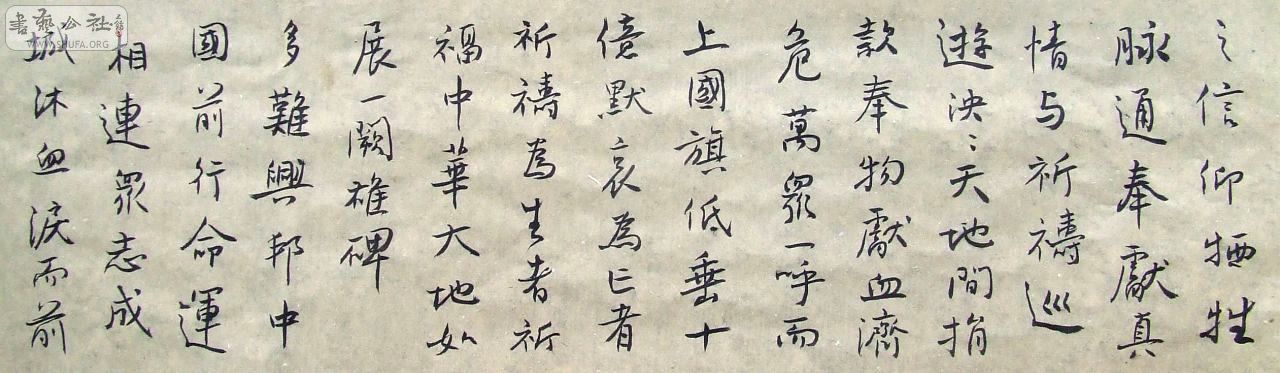 之信仰牺牲
脉通奉獻真
情与祈禱巡
遊泱〻天地間捐
款奉物獻血濟
危萬眾一呼而
上國旗低垂十
億默哀為亡者
祈禱為生者祈
福中華大地如
展一闕雄碑
多難興邦中
國前行命運
相連眾志成
城沐血淚而前
書藝公社
WWW.SHUFA.ORG